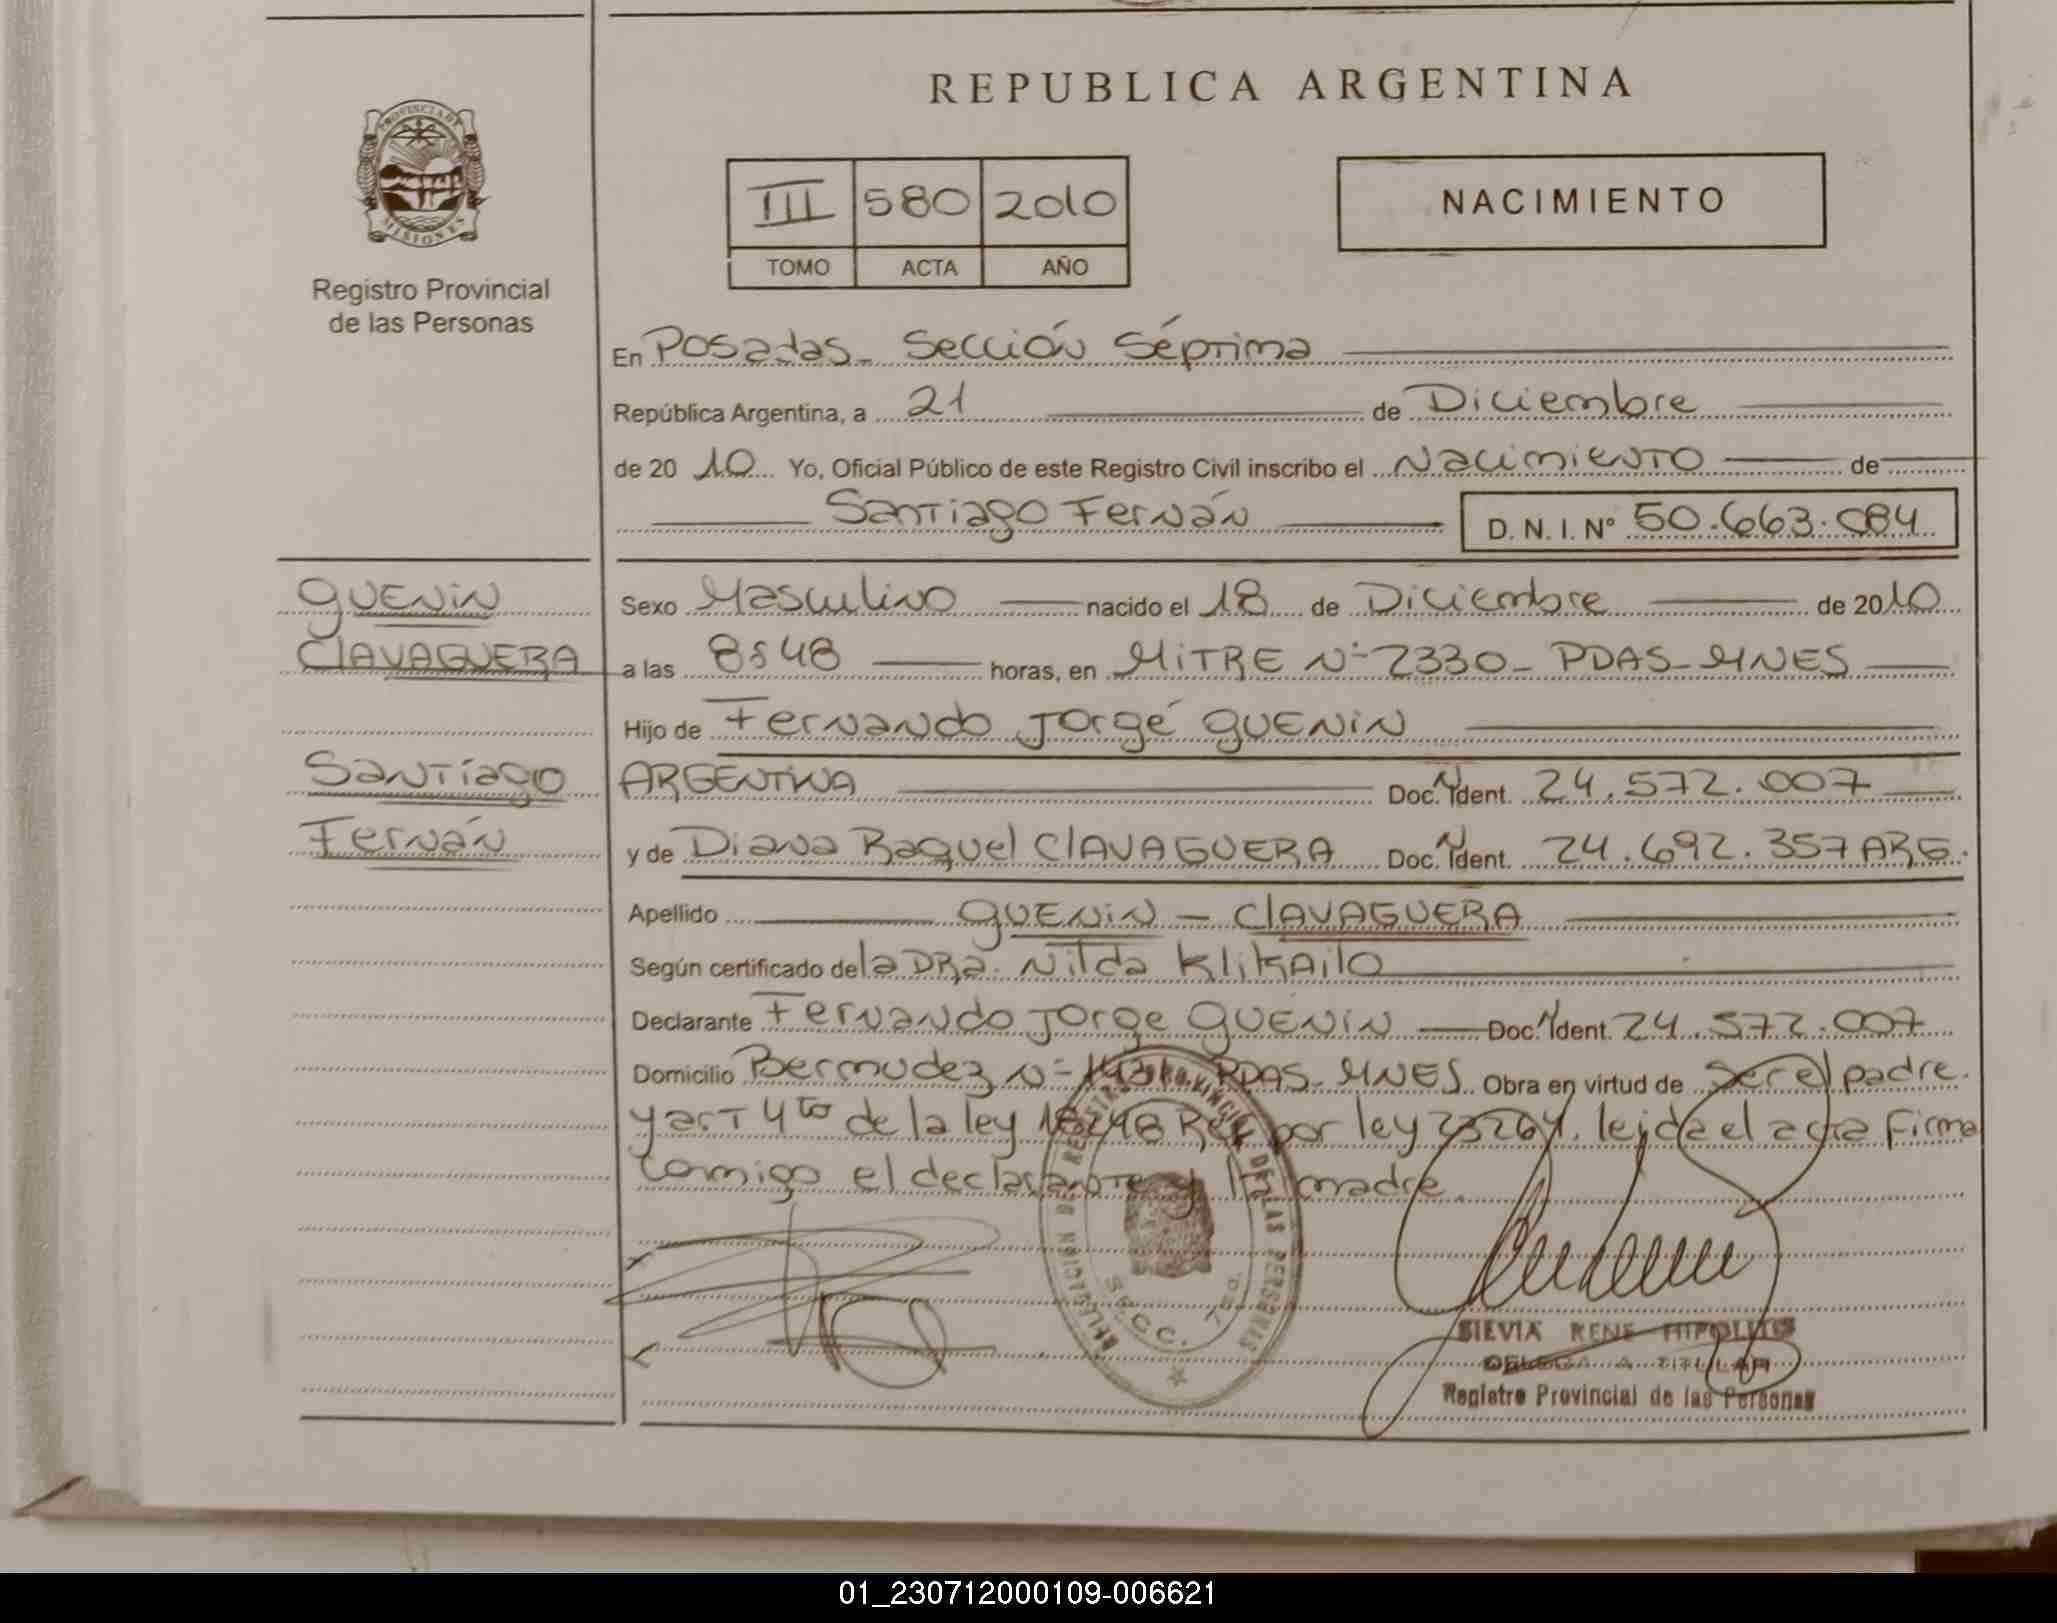 REPUBLICA ARGENTINA
PROVINCIA DE MISIONES
III 580 2010
TOMO ACTA AÑO
NACIMIENTO
Registro Provincial
de las Personas
En Posadas - Sección Séptima
República Argentina, a 21 de Diciembre
de 20 10 Yo, Oficial Público de este Registro Civil inscribo el Nacimiento de
Santiago Fernán D. N. I. Nº 50.663.084
GUENIN
CLAVAGUERA
Santiago
Fernán
Sexo Masculino nacido el 18 de Diciembre de 2010
a las 8:48 horas, en MITRE Nº 2330 - PDAS - MNES
Hijo de Fernando Jorge GUENIN
ARGENTINA Doc. N Ident. 24.572.007
y de Diana Raquel CLAVAGUERA Doc. N Ident. 24.692.357 ARG.
Apellido GUENIN - CLAVAGUERA
Según certificado de la DRA. Nilda KLIKAILO
Declarante Fernando Jorge GUENIN Doc. N Ident. 24.572.007
Domicilio Bermudez Nº PDAS - MNES. Obra en virtud de ser el padre.
y art 4to de la ley 18248 Ref por ley 23264. leida el acta firma
comigo el declarante y la madre.
DELEGACION DE REGISTRO PROVINCIAL DE LAS PERSONAS
SECC. 7ma.
RENE HIPOLITO
DELEGADA TITULAR
Registro Provincial de las Personas
01_230712000109-006621